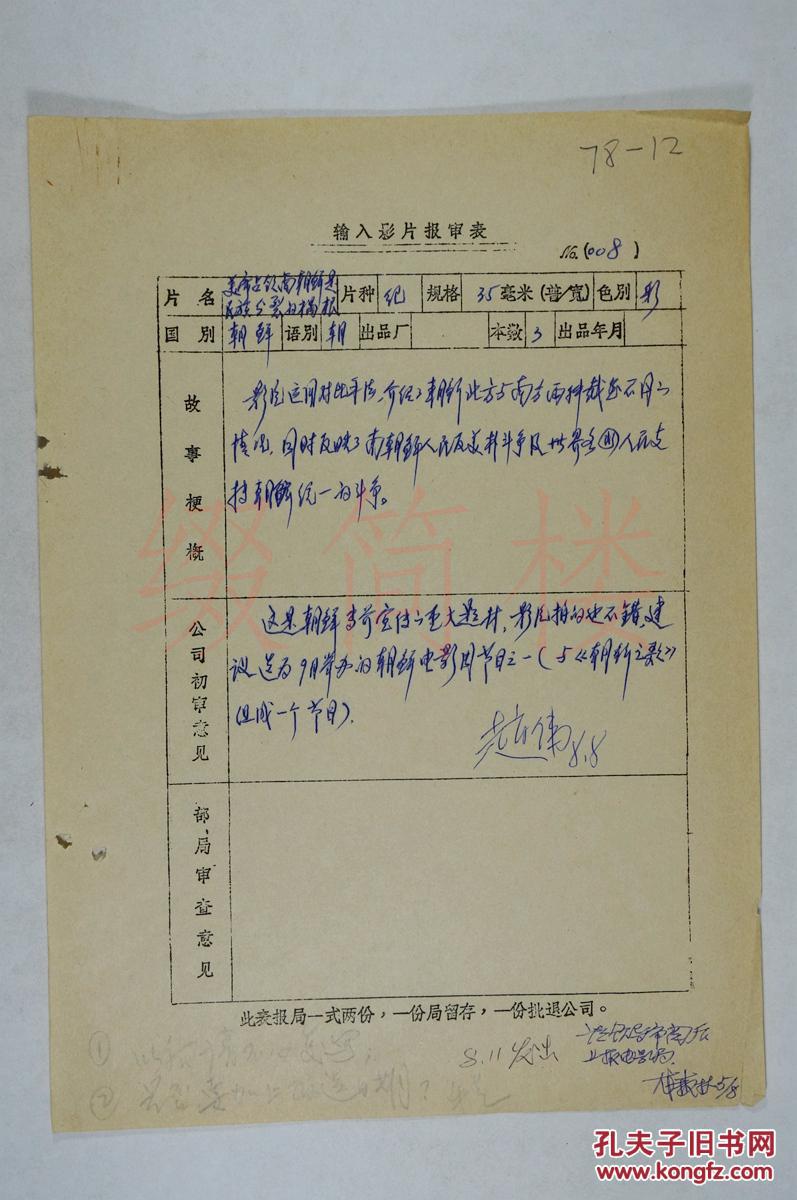 78-12
输入影片报审表
No.(008)
片名 美帝占领南朝鲜是民族分裂的祸根 片种 纪 规格 35毫米(普/宽) 色别 彩
国别 朝鲜 语别 朝 出品厂 本数 3 出品年月
故事梗概
影片运用对比手法,介绍了朝鲜北方与南方两种截然不同的
情况,同时反映了南朝鲜人民反美斗争及世界各国人民支
持朝鲜统一的斗争。
公司初审意见
这是朝鲜当前宣传的重大题材,影片拍的也不错,建
议选为9月举办的朝鲜电影周节目之一(与《朝鲜之歌》
组成一个节目)。
8.8
部、局审查意见
此表报局一式两份,一份局留存,一份批退公司。
8.11发出
上报电影局.
5/8
①
②
缀简楼
孔夫子旧书网
www.kongfz.com